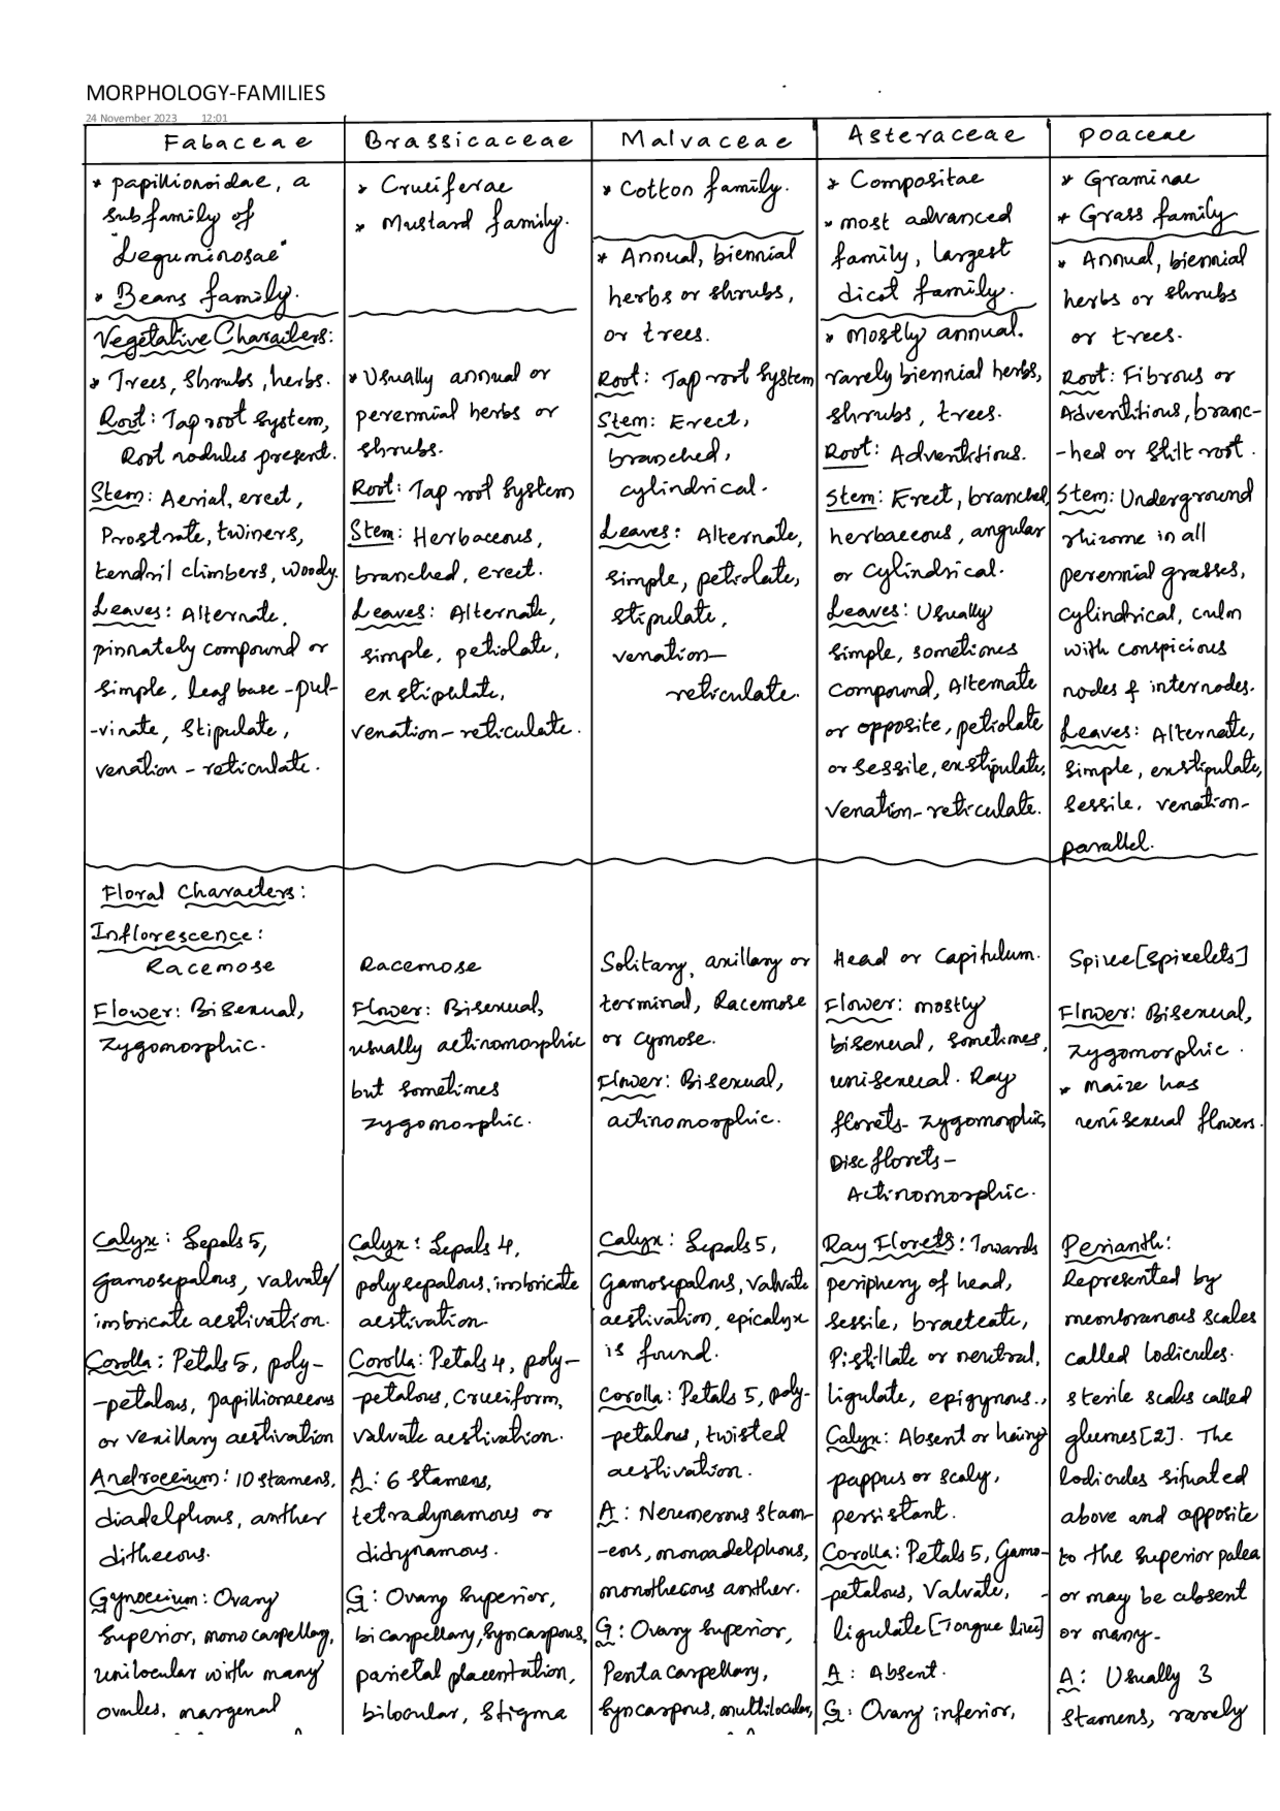 MORPHOLOGY-FAMILIES
24 November 2023 12:01
Fabaceae
* papillionoidae, a
subfamily of
"Leguminosae"
* Beans family.
Vegetative Charaters:
* Trees, Shrubs, herbs.
Root: Tap root system,
Root nodules present.
Stem: Aerial, erect,
Prostrate, twiners,
tendril climbers, woody.
Leaves: Alternate,
pinnately compound or
simple, leaf base -pul-
-vinate, stipulate,
venation - reticulate.
Floral Characters:
Inflorescence:
Racemose
Flower: Bisexual,
Zygomorphic.
Calyx: Sepals 5,
gamosepalous, valvate/
imbricate aestivation.
Corolla: Petals 5, poly-
-petalous, papillionaceous
or vexillary aestivation
Androecium: 10 stamens,
diadelphous, anther
dithecous.
Gynoecium: Ovary
superior, monocarpellary,
unilocular with many
ovules, marginal
Brassicaceae
* Cruciferae
* Mustard family.
* Usually annual or
perennial herbs or
shrubs.
Root: Tap root system
Stem: Herbaceous,
branched, erect.
Leaves: Alternate,
simple, petiolate,
exstipulate,
venation - reticulate.
Racemose
Flower: Bisexual,
usually actinomorphic
but sometimes
zygomorphic.
Calyx: Sepals 4,
polysepalous, imbricate
aestivation.
Corolla: Petals 4, poly-
-petalous, Cruciform,
valvate aestivation.
A: 6 stamens,
tetradynamous or
didynamous.
G: Ovary superior,
bicarpellary, syncarpous,
parietal placentation,
bilocular, stigma
Malvaceae
* Cotton family.
* Annual, biennial
herbs or shrubs,
or trees.
Root: Tap root system
Stem: Erect,
branched,
cylindrical.
Leaves: Alternate,
simple, petiolate,
stipulate,
venation-
reticulate.
Solitary, axillary or
terminal, Racemose
or cymose.
Flower: Bisexual,
actinomorphic.
Calyx: Sepals 5,
Gamosepalous, valvate
aestivation, epicalyx
is found.
Corolla: Petals 5, poly-
-petalous, twisted
aestivation.
A: Numerous stam-
-ens, monoadelphous,
monothecous anther.
G: Ovary superior,
Pentacarpellary,
Syncarpous, multilocular,
Asteraceae
* Compositae
* most advanced
family, largest
dicot family.
* Mostly annual.
rarely biennial herbs,
shrubs, trees.
Root: Adventitious.
Stem: Erect, branched,
herbaceous, angular
or cylindrical.
Leaves: Usually
simple, sometimes
compound, Alternate
or opposite, petiolate
or sessile, exstipulate,
venation-reticulate.
Head or Capitulum.
Flower: mostly
bisexual, sometimes,
unisexual. Ray
florets- zygomorphic,
Disc florets-
Actinomorphic.
Ray Florets: Towards
periphery of head,
sessile, bracteate,
Pistillate or neutral,
ligulate, epigynous.,
Calyx: Absent or hairy
pappus or scaly,
persistant.
Corolla: Petals 5, Gamo-
-petalous, Valvate,
ligulate [Tongue like]
A: Absent.
G: Ovary inferior,
Poaceae
* Graminae
* Grass family
* Annual, biennial
herbs or shrubs
or trees.
Root: Fibrous or
Adventitious, branc-
-hed or stilt root.
Stem: Underground
rhizome in all
perennial grasses,
cylindrical, culm
with conspicious
nodes & internodes.
Leaves: Alternate,
simple, exstipulate,
sessile, venation-
parallel.
Spike [spikelets]
Flower: Bisexual,
zygomorphic.
* Maize has
unisexual flowers.
Perianth:
Represented by
membranous scales
called lodicules.
sterile scales called
glumes [2]. The
lodicules situated
above and opposite
to the superior palea
or may be absent
or many-
A: Usually 3
stamens, rarely